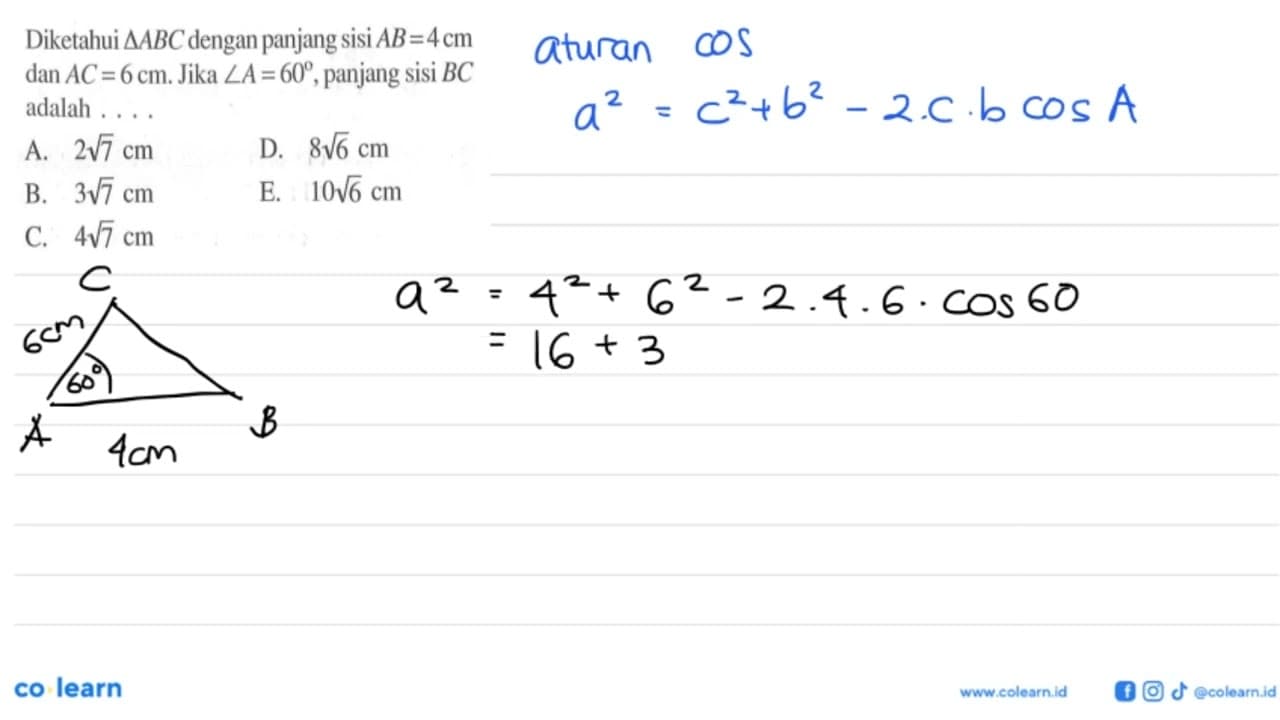 Diketahui ΔABC dengan panjang sisi AB=4 cm
dan AC=6 cm. Jika ∠A=60°, panjang sisi BC
adalah . . . .
A. 2√7 cm
B. 3√7 cm
C. 4√7 cm
D. 8√6 cm
E. 10√6 cm
aturan cos
a² = c²+b² - 2.c.b cos A
C
6cm
60°
A
4cm
B
a² = 4² + 6² - 2.4.6. cos 60
= 16 + 3
co learn
www.colearn.id
@colearn.id